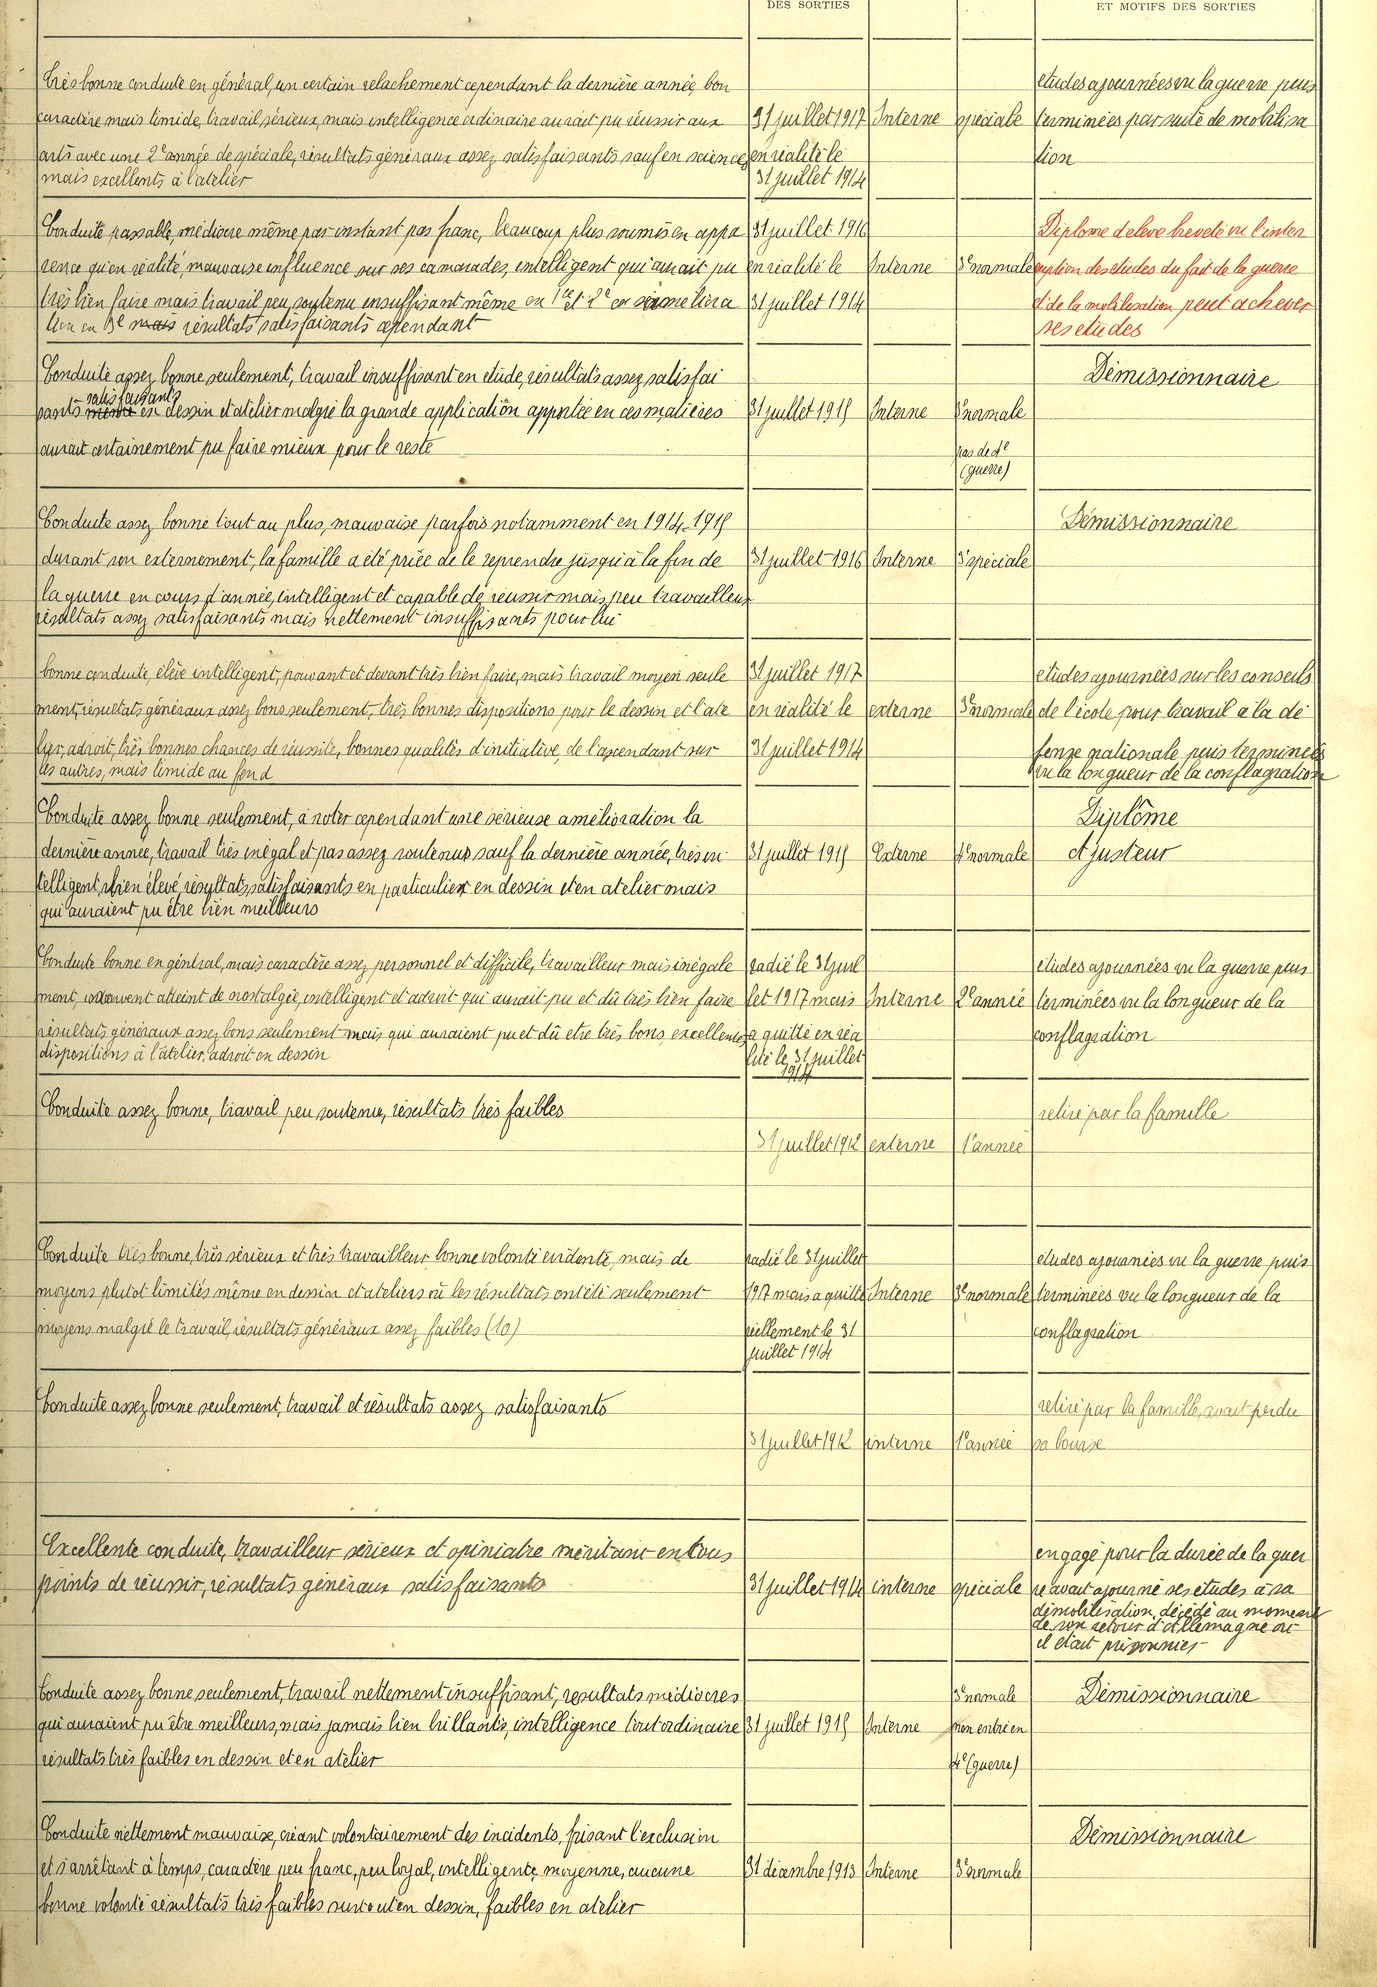 DES SORTIES
ET MOTIFS DES SORTIES
Très bonne conduite en général, un certain relachement cependant la dernière année, bon
caractère mais timide, travail sérieux, mais intelligence ordinaire aurait pu réussir aux
arts avec une 2e année de spéciale, résultats généraux assez satisfaisants sauf en sciences
mais excellents à l'atelier
31 juillet 1917
en réalité le
31 juillet 1914
Interne
spéciale
etudes ajournées vu la guerre puis
terminées par suite de mobilisa
tion
Conduite passable, médiocre même par instant pas franc, beaucoup plus soumis en appa
rence qu'en réalité, mauvaise influence sur ses camarades, intelligent qui aurait pu
très bien faire mais travail peu soutenu insuffisant même en 1re et 2e
lieu en 3e mais résultats satisfaisants cependant
31 juillet 1916
en réalité le
31 juillet 1914
Interne
3e normale
Diplome d'eleve breveté vu l'inter
ruption des etudes du fait de la guerre
et de la mobilisation peut achever
ses etudes
Conduite assez bonne seulement, travail insuffisant en etude, résultats assez satisfai
satisfaisants
sants même en dessin et atelier malgré la grande application apportée en ces matières
aurait certainement pu faire mieux pour le reste
31 juillet 1915
Interne
3e normale
pas de 4e
(guerre)
Démissionnaire
Conduite assez bonne tout au plus, mauvaise parfois notamment en 1914-1915
durant son externement, la famille a été priée de le reprendre jusqu'à la fin de
la guerre en cours d'année, intelligent et capable de réussir mais peu travailleur
résultats assez satisfaisants mais nettement insuffisants pour lui
31 juillet 1916
Interne
3e spéciale
Démissionnaire
bonne conduite, élève intelligent, pouvant et devant très bien faire, mais travail moyen seule
ment, résultats généraux assez bons seulement, très bonnes dispositions pour le dessin et l'ate
lier, adroit, très bonnes chances de réussite, bonnes qualités d'initiative, de l'ascendant sur
les autres, mais timide au fond
31 juillet 1917
en réalité le
31 juillet 1914
externe
3e normale
etudes ajournées sur les conseils
de l'école pour travail à la dé
fense nationale puis terminées
vu la longueur de la conflagration
Conduite assez bonne seulement, à noter cependant une sérieuse amélioration la
dernière année, travail très inégal et pas assez soutenu sauf la dernière année, très in
telligent, bien élevé, résultats satisfaisants en particulier en dessin et en atelier mais
qui auraient pu être bien meilleurs
31 juillet 1915
Externe
4e normale
Diplôme
Ajusteur
Conduite bonne en général, mais caractère assez personnel et difficile, travailleur mais inégale
ment, souvent atteint de nostalgie, intelligent et adroit qui aurait pu et dû très bien faire
résultats généraux assez bons seulement mais qui auraient pu et dû etre très bons, excellentes
dispositions à l'atelier, adroit en dessin
radié le 31 juil
let 1917 mais
a quitté en réa
lité le 31 juillet
1914
Interne
2e année
etudes ajournées vu la guerre puis
terminées vu la longueur de la
conflagration
Conduite assez bonne, travail peu soutenu, résultats très faibles
31 juillet 1912
externe
1e année
retiré par la famille
Conduite très bonne, très sérieux et très travailleur, bonne volonté evidente, mais de
moyens plutot limités même en dessin et ateliers où les résultats ont été seulement
moyens malgré le travail, résultats généraux assez faibles (10)
radié le 31 juillet
1917 mais a quitté
réellement le 31
juillet 1914
Interne
3e normale
etudes ajournées vu la guerre puis
terminées vu la longueur de la
conflagration
Conduite assez bonne seulement, travail et résultats assez satisfaisants
31 juillet 1912
interne
1e année
retiré par la famille, avait perdu
sa bourse
Excellente conduite, travailleur sérieux et opiniatre méritant en tous
points de réussir, résultats généraux satisfaisants
31 juillet 1914
interne
spéciale
engagé pour la durée de la guer
re avait ajourné ses etudes à sa
démobilisation, décédé au moment
de son retour d'Allemagne où
il etait prisonnier
Conduite assez bonne seulement, travail nettement insuffisant, resultats médiocres
qui auraient pu être meilleurs, mais jamais bien brillants, intelligence tout ordinaire
résultats très faibles en dessin et en atelier
31 juillet 1915
Interne
3e normale
non entré en
4e (guerre)
Démissionnaire
Conduite nettement mauvaise, créant volontairement des incidents, frisant l'exclusion
et s'arrêtant à temps, caractère peu franc, peu loyal, intelligence moyenne, aucune
bonne volonté résultats très faibles surtout en dessin, faibles en atelier
31 décembre 1913
Interne
3e normale
Démissionnaire